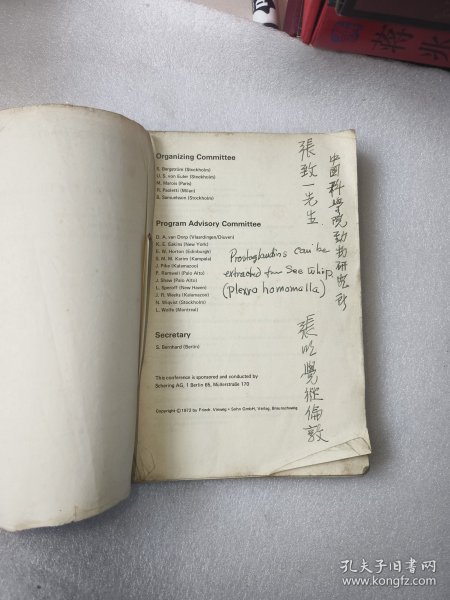 Organizing Committee
S. Bergström (Stockholm)
U. S. von Euler (Stockholm)
M. Marois (Paris)
R. Paoletti (Milan)
B. Samuelsson (Stockholm)
Program Advisory Committee
D. A. van Dorp (Vlaardingen/Diuven)
K. E. Eakins (New York)
E. W. Horton (Edinburgh)
S. M. M. Karim (Kampala)
J. Pike (Kalamazoo)
P. Ramwell (Palo Alto)
J. Shaw (Palo Alto)
L. Speroff (New Haven)
J. R. Weeks (Kalamazoo)
N. Wiqvist (Stockholm)
L. Wolfe (Montreal)
Secretary
S. Bernhard (Berlin)
This conference is sponsored and conducted by
Schering AG, 1 Berlin 65, Müllerstraße 170
Copyright © 1973 by Friedr. Vieweg + Sohn GmbH, Verlag, Braunschweig
Prostaglandins can be
extracted from See whip
(plexra homomalla)
中国科学院动物研究所
張致一先生
張明覺 倫敦
孔夫子旧书网
www.kongfz.com